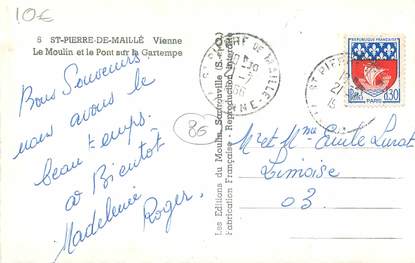 10€
5 ST-PIERRE-DE-MAILLÉ Vienne
Le Moulin et le Pont sur la Gartempe
Bons Souvenirs.
nous avons le
beau temps.
a Bientôt
Madeleine
Roger.
86
Les Editions du Moulin, Sartrouville (S.-et-O.)
Fabrication Française - Reproduction interdite
ST PIERRE DE MAILLÉ
VIENNE
REPUBLIQUE FRANÇAISE
0,30
PARIS
ST PIERRE
Mr et Mme Emile Lurat
Limoise
03.